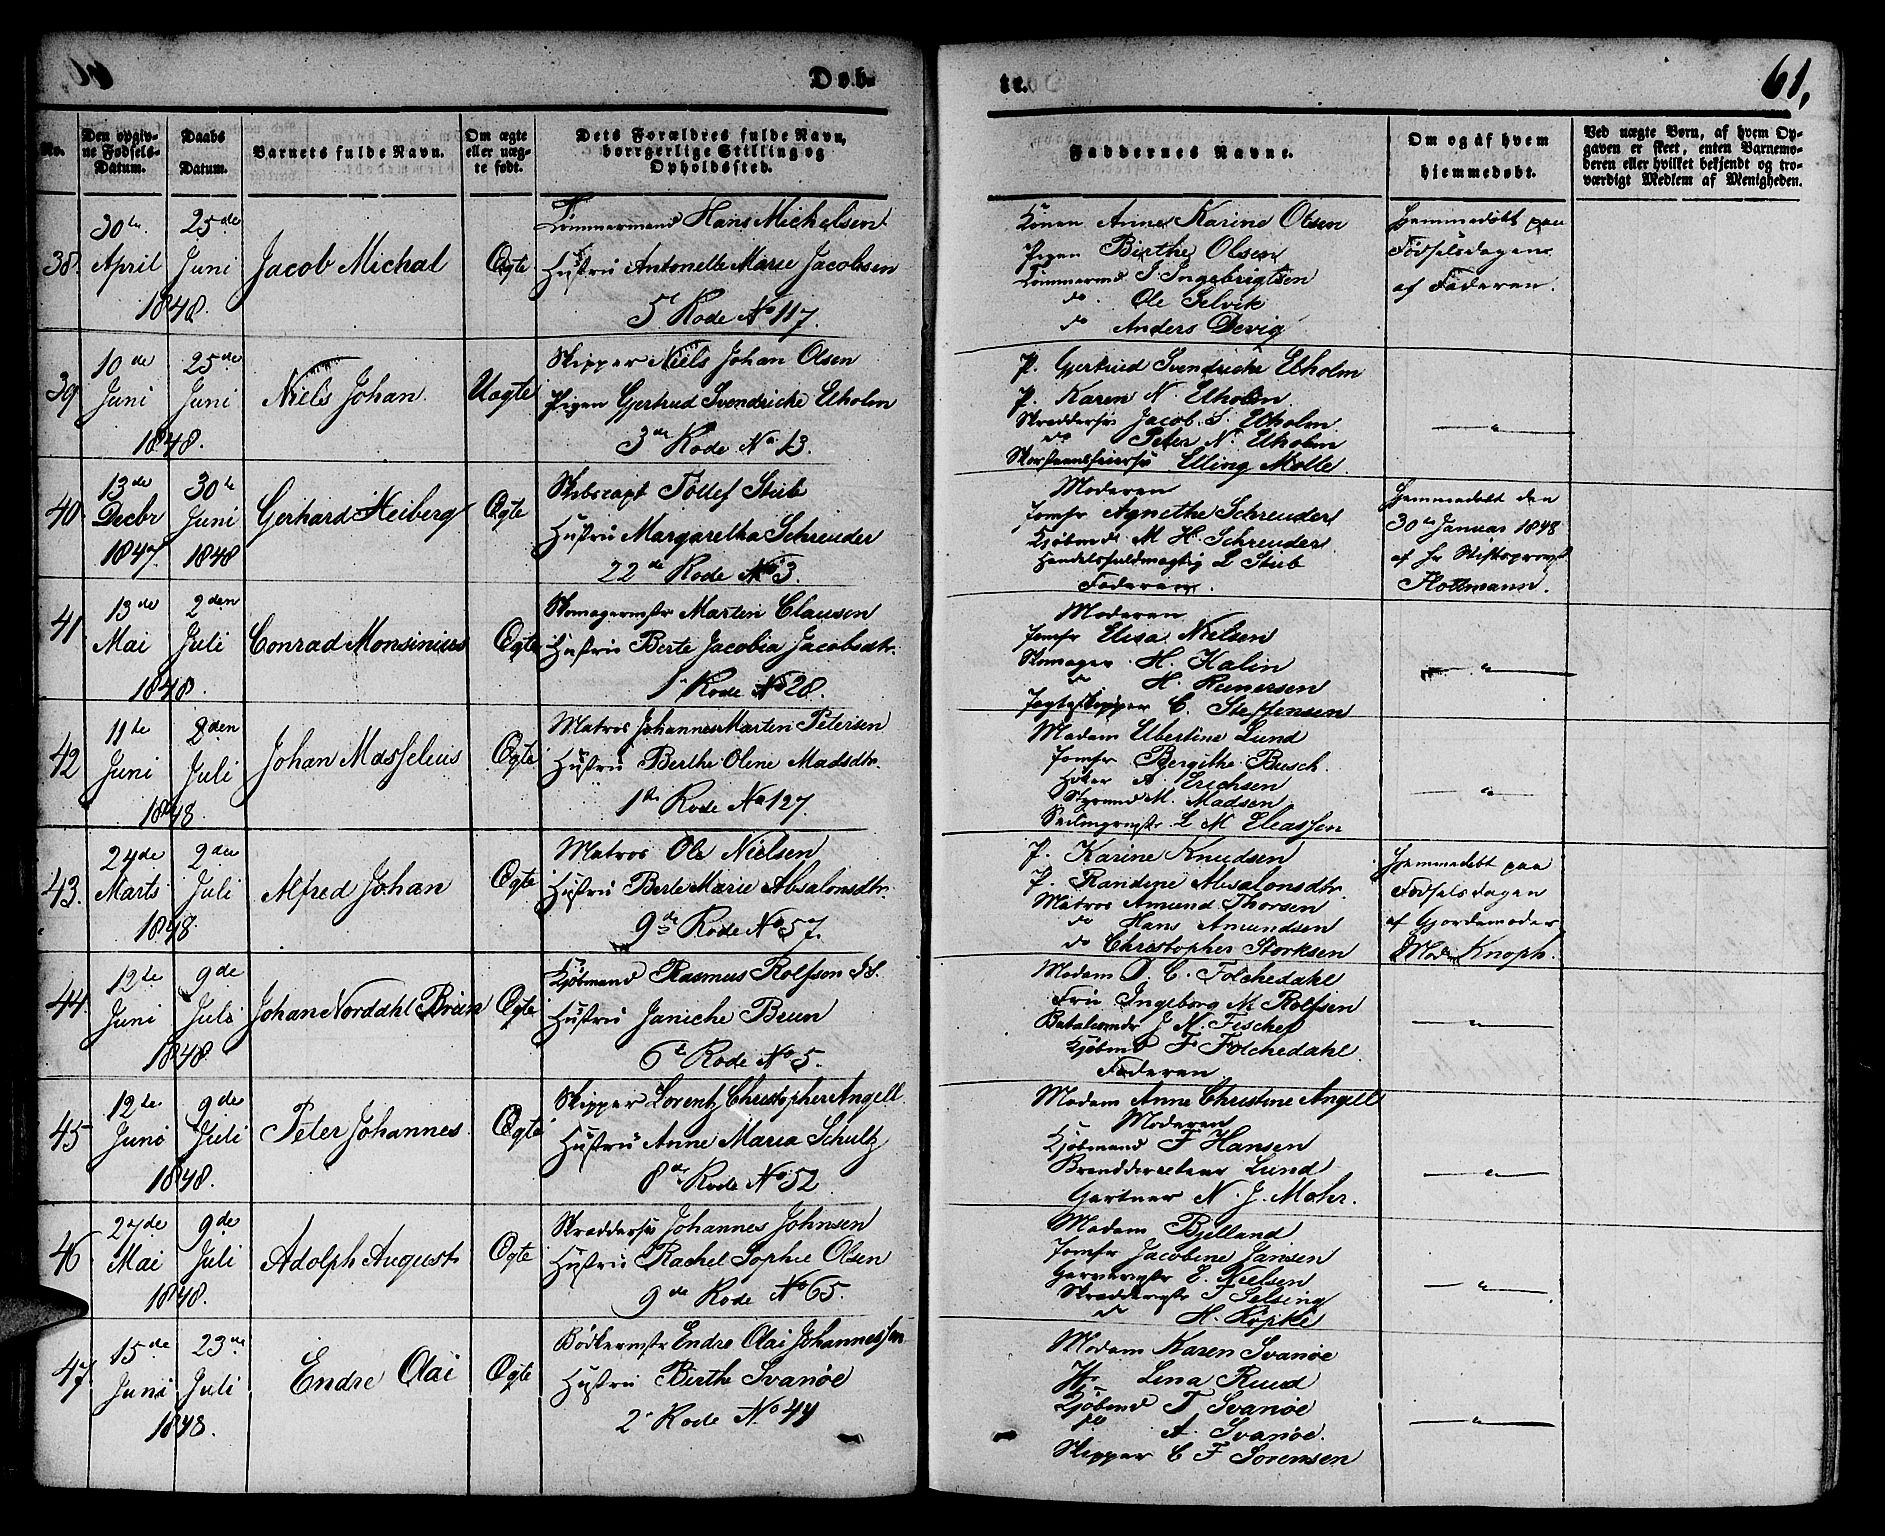 Døb-
No.
Den opgiv-
ne Fødsels-
Datum.
Daabs
Datum.
Barnets fulde Navn.
Om ægte
eller uæg-
te født.
Dets Forældres fulde Navn,
borrgerlige Stilling og
Opholdssted.
38.
30te
April
25de
Juni
1848.
Jacob Michal
Ægte
Tømmermand Hans Michelsen
Hustru Antonette Marie Jacobsen
5 Rode No 117.
39
10de
Juni
25de
Juni
1848.
Niels Johan.
Uægte
Skipper Niels Johan Olsen
Pigen Gertrud Svendricke Etholm
3de Rode No 13.
40
13de
Decbr
1847.
30te
Juni
1848
Gerhard Heiberg
Ægte
Skibscapt Tollef Stub
Hustru Margaretha Schreuder
22de Rode No 3.
41
13de
Mai
2den
Juli
1848.
Conrad Monsinius
Ægte
Skomagermstr Martin Clausen
Hustru Berte Jacobia Jacobsdtr.
1 Rode No 28.
42
11te
Juni
2den
Juli
1848.
Johan Masselius
Ægte
Matros Johannes Marten Petersen
Hustru Berthe Oline Madsdtr.
1te Rode No 127.
43.
24de
Marts
2den
Juli
1848.
Alfred Johan
Ægte
Matros Ole Nielsen
Hustru Berte Marie Absalonsdtr.
9de Rode No 57.
44.
12te
Juni
9de
Juli
1848
Johan Norddahl Brun
Ægte
Kjøbmand Rasmus Rolfsen
Hustru Janiche Brun
6te Rode No 5.
45
12te
Juni
9de
Juli
1848.
Peter Johannes
Ægte
Skipper Lorentz Christopher Angell
Hustru Anne Maria Schultz
8de Rode No 52
46
27de
Mai
9de
Juli
1848.
Adolph August
Ægte
Skræddersv Johannes Johnsen
Hustru Rachel Sophie Olsen
9de Rode No 65.
47
15de
Juni
23de
Juli
1848.
Endre Olai
Ægte
Bødkermstr Endre Olai Johannessen
Hustru Berthe Svanøe
2 Rode No 44
te.
61,
Faddernes Navne.
Om og af hvem
hjemmedøbt.
Ved uægte Børn, af hvem Op-
gaven er skeet, enten Barnemo-
deren eller hvilket bekjendt og tro-
værdigt Medlem af Menigheden.
Konen Anne Karine Olsen
Pigen Birthe Olsen
Tømmermd J. Ingebrigtsen
do. Ole Selvik
do Anders Devig
Hjemmedøbt paa
Fødselsdagen
af Faderen.
P. Gertrud Svendricke Etholm
P. Karen N. Etholm
Skræddersv Jacob S. Etholm
do Peter N. Etholm
Skorsteensfeiersv Elling Molle.
Moderen
Jomfr Agnethe Schreuder
Kjøbmd M H. Schreuder
Handelsfuldmægtig L Stub
Faderen.
Hjemmedøbt den
30te Januar 1848
af Hr Stiftsprovst
Moderen
Jomfr Elisa Nielsen
Skomager H. Kalin
do H. Runersen
Jagteskipper C. Steffensen
Madam Ubertine Lund
Jomfr Bergithe Busch.
Høker A. Erichsen
Styrmd M. Madsen
Seilmagrmstr. L M Eleassen
P. Karine Knudsen
P. Randine Absalonsdtr
Matros Amund Thorsen
do Hans Amundsen
do Christopher Storksen
Hjemmedøbt paa
Fødselsdagen
af Gjordemoder
Mad Knoph.
Madam D. C. Folchedahl
Fru Ingeborg M. Rolfsen
J N. Fischer
Kjøbmd F. Folchedahl
Faderen
Madam Anne Christine Angell
Moderen
Kjøbmand F Hansen
Lund
Gartner N. J. Mohr.
Madam Bjelland
Jomfr Jacobine Jansen
Garvermstr E. Nielsen
Skræddermstr F Selsing
do H. Køpke
Madam Karen Svanøe
Lena Ruud
Kjøbmd T Svanøe
do A. Svanøe.
Skipper C F Sørensen